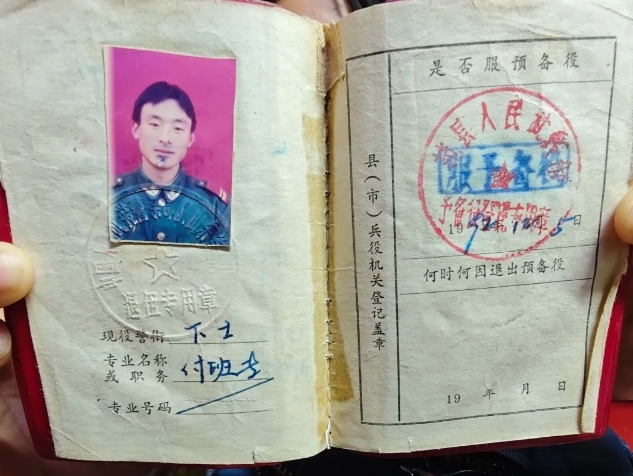 退伍专用章
现役警衔 下士
专业名称
或职务 付班长
专业号码
县（市）兵役机关登记盖章
是否服预备役
县人民武装部
服予备役
予备役登记专用章
1992年12月5日
何时何因退出预备役
19 年 月 日